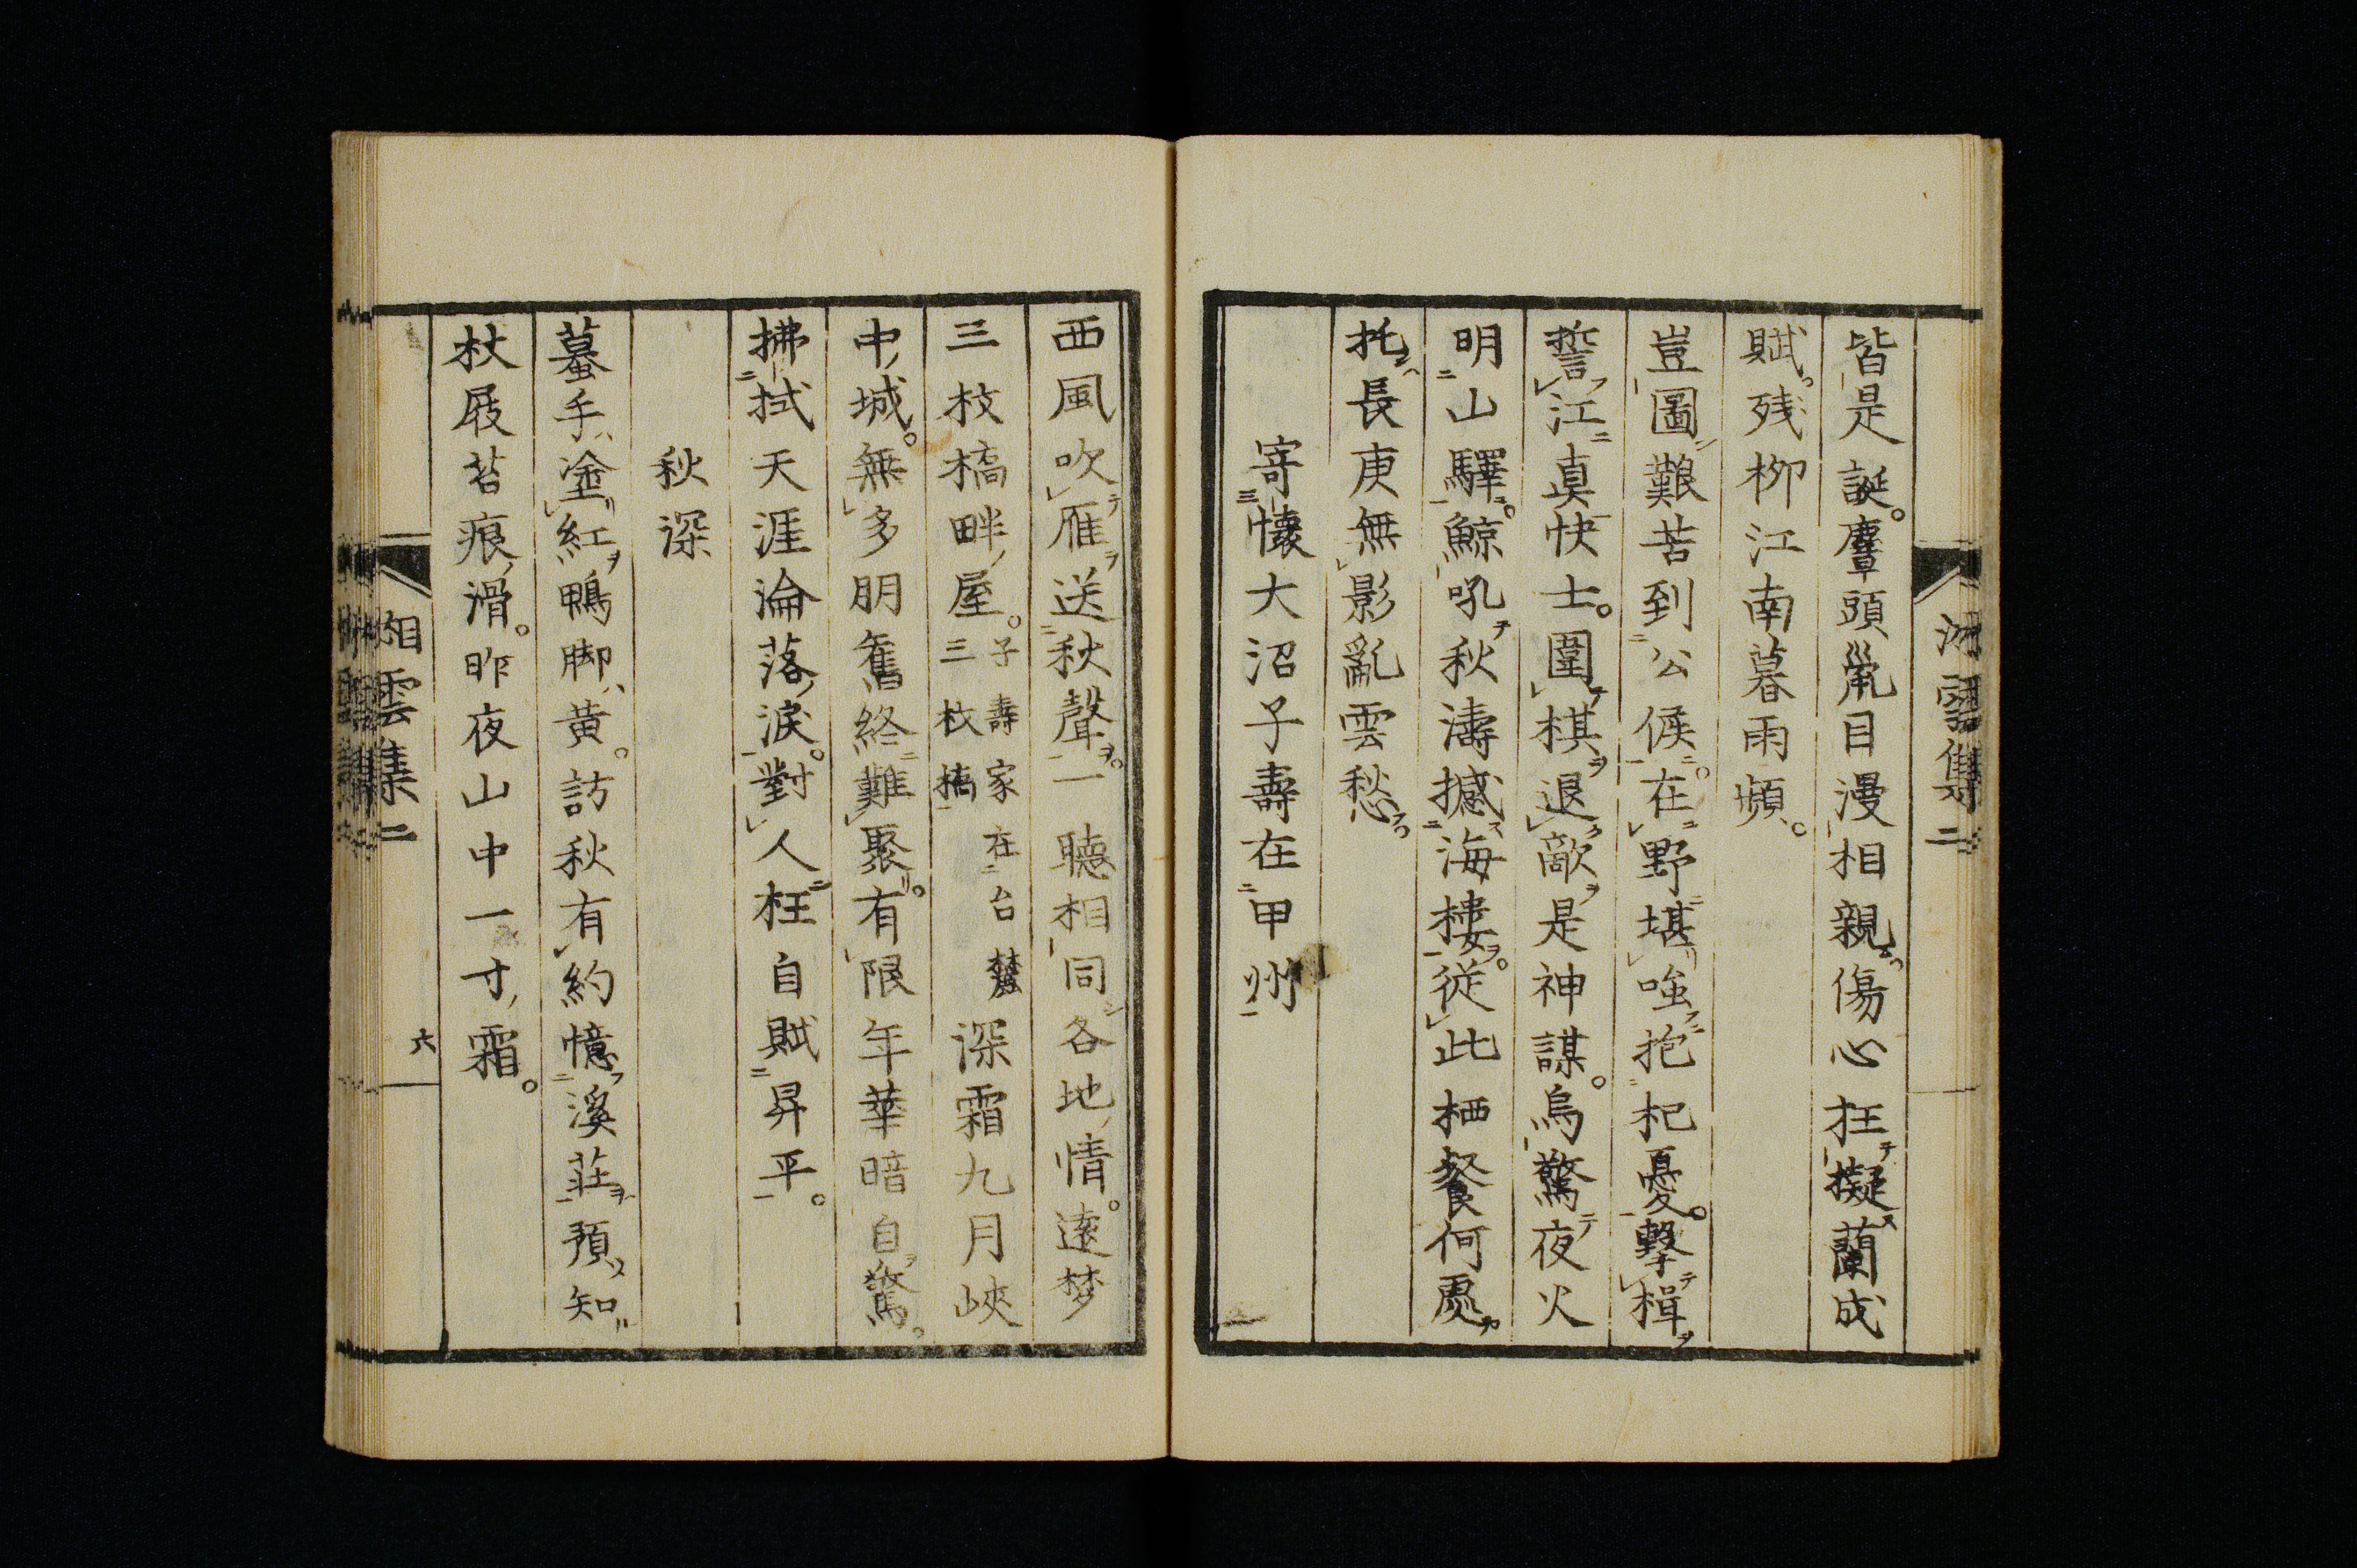 皆是誕。麞頭鼠目漫相親。傷心枉擬蘭成
賦。残柳江南暮雨頻。
豈圖艱苦到公侯。在野堪嗤抱杞憂。擊楫
誓江真快士。圍棋退敵是神謀。烏驚夜火
明山驛。鯨吼秋濤撼海樓。從此栖餐何處
托。長庚無影亂雲愁。
寄懐大沼子壽在甲州
西風吹雁送秋聲。一聽相同各地情。遠梦
三枚橋畔屋。子壽家在台麓三枚橋深霜九月峽
中城。無多朋舊終難聚。有限年華暗自驚。
拂拭天涯淪落淚。對人枉自賦昇平。
秋深
蟇手塗紅鴨脚黄。訪秋有約憶溪莊。預知
杖屐苔痕滑。昨夜山中一寸霜。
雲集二
六